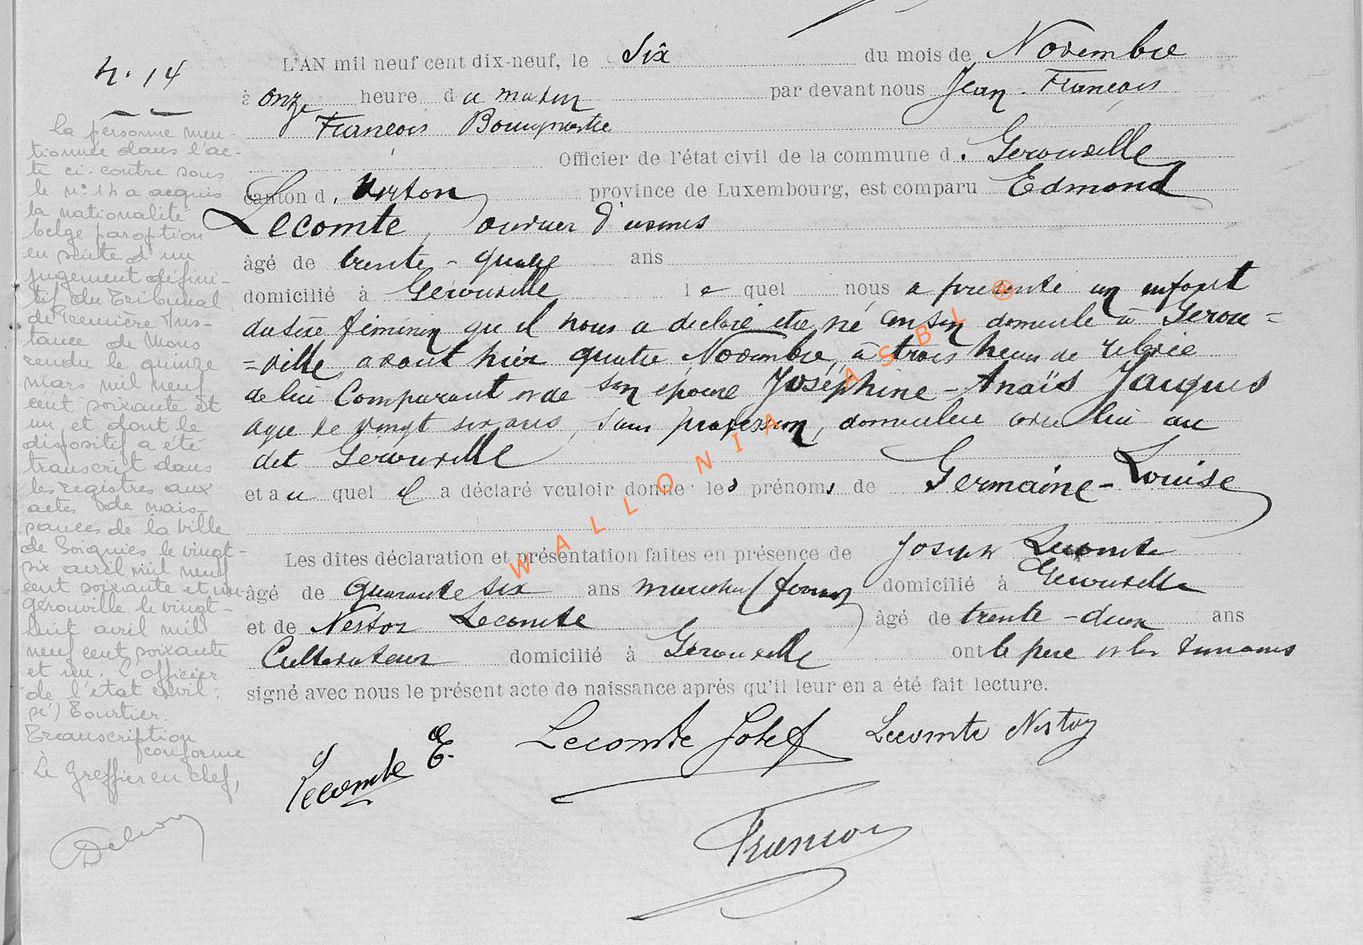 N. 14
La personne men-
tionnée dans l'ac-
te ci-contre sous
le N° 14 a acquis
la nationalité
belge par option
en suite d'un
jugement défini-
tif du Tribunal
de Première Ins-
tance de Mons
rendu le quinze
mars mil neuf
cent soixante et
un et dont le
dispositif a été
transcrit dans
les registres aux
actes de nais-
sances de la ville
de Soignies le vingt-
six avril mil neuf
cent soixante et un
Gérouville le vingt-
huit avril mil
neuf cent soixante
et un. L'officier
de l'état civil:
sé) Tourtier.
Transcription
conforme
Le Greffier en chef,
L'AN mil neuf cent dix-neuf, le Six du mois de Novembre
à onze heure du matin par devant nous Jean-François
François Bourgmestre
Officier de l'état civil de la commune d. Gerouville
canton d. Virton province de Luxembourg, est comparu Edmond
Lecomte, ouvrier d'usines
âgé de trente-quatre ans
domicilié à Gerouville lequel nous a présenté un enfant
du sexe féminin qu'il nous a déclaré être né en son domicile à Gerou=
=ville, avant hier quatre Novembre, à trois heures de relevée
de lui Comparant et de son épouse Joséphine-Anaïs Jacques
agée de vingt six ans, sans profession, domiciliée avec lui au
dit Gerouville
et au quel il a déclaré vouloir donner les prénoms de Germaine-Louise
Les dites déclaration et présentation faites en présence de Joseph Lecomte
âgé de quarante six ans maréchal ferrant domicilié à Gerouville
et de Nestor Lecomte âgé de trente-deux ans
Cultivateur domicilié à Gérouville ont le père et les témoins
signé avec nous le présent acte de naissance après qu'il leur en a été fait lecture.
Lecomte E. Lecomte Josef Lecomte Nestor
François
WALLONIA ASBL ®